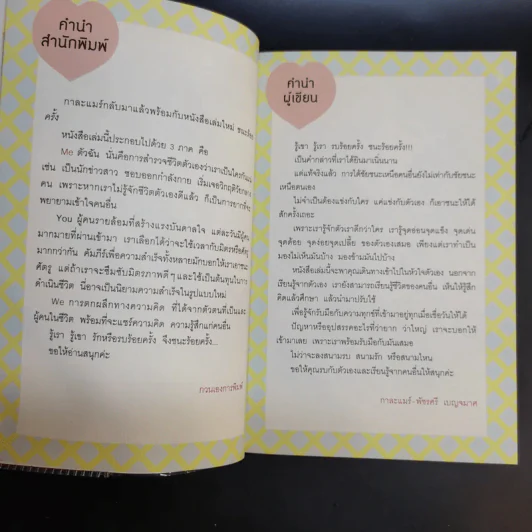 คำนำ
สำนักพิมพ์
กาละแมร์กลับมาแล้วพร้อมกับหนังสือเล่มใหม่ ชนะร้อย
ครั้ง
หนังสือเล่มนี้ประกอบไปด้วย 3 ภาค คือ
Me ตัวฉัน นั่นคือการสำรวจชีวิตตัวเองว่าเราเป็นใครกันแน่
เช่น เป็นนักข่าวสาว ชอบออกกำลังกาย เริ่มเจอวิกฤติวัย
คน เพราะหากเราไม่รู้จักชีวิตตัวเองดีแล้ว ก็เป็นการยากที่จะ
พยายามเข้าใจคนอื่น
You ผู้คนรายล้อมที่สร้างแรงบันดาลใจ แต่ละวันมีผู้คน
มากมายที่ผ่านเข้ามา เราเลือกได้ว่าจะใช้เวลากับมิตรหรือศัตรู
มากกว่ากัน คัมภีร์เพื่อความสำเร็จทั้งหลายมักบอกให้เราเอาชนะ
ศัตรู แต่ถ้าเราจะซึมซับมิตรภาพดีๆ และใช้เป็นต้นทุนในการ
ดำเนินชีวิต นี่อาจเป็นนิยามความสำเร็จในรูปแบบใหม่
We การตกผลึกทางความคิด ที่ได้จากตัวตนที่เป็นและ
ผู้คนในชีวิต พร้อมที่จะแชร์ความคิด ความรู้สึกแก่คนอื่น
รู้เรา รู้เขา รักหรือรบร้อยครั้ง จึงชนะร้อยครั้ง...
ขอให้อ่านสนุกค่ะ
กวนเองการพิมพ์
คำนำ
ผู้เขียน
รู้เขา รู้เรา รบร้อยครั้ง ชนะร้อยครั้ง!!!
เป็นคำกล่าวที่เราได้ยินมาเนิ่นนาน
แต่แท้จริงแล้ว การได้ชัยชนะเหนือคนอื่นยังไม่เท่ากับชัยชนะ
เหนือตนเอง
ไม่จำเป็นต้องแข่งกับใคร แค่แข่งกับตัวเอง ก็เอาชนะให้ได้
สักครั้งเถอะ
เพราะเรารู้จักตัวเราดีกว่าใคร เรารู้จุดอ่อนจุดแข็ง จุดเด่น
จุดด้อย จุดบ่งจุดเปลี้ย ของตัวเองเสมอ เพียงแต่เราทำเป็น
มองไม่เห็นมันบ้าง มองข้ามมันไปบ้าง
หนังสือเล่มนี้จะพาคุณเดินทางเข้าไปในหัวใจตัวเอง นอกจาก
เรียนรู้จากตัวเอง เรายังสามารถเรียนรู้ชีวิตของคนอื่น เห็นให้รู้สึก
คิดแล้วศึกษา แล้วนำมาปรับใช้
เพื่อรู้จักรับมือกับความทุกข์ที่เข้ามาอยู่ทุกเมื่อเชื่อวันให้ได้
ปัญหาหรืออุปสรรคอะไรที่ว่ายาก ว่าใหญ่ เราจะบอกให้
เข้ามาเลย เพราะเราพร้อมรับมือกับมันเสมอ
ไม่ว่าจะลงสนามรบ สนามรัก หรือสนามไหน
ขอให้คุณรบกับตัวเองและเรียนรู้จากคนอื่นให้สนุกค่ะ
กาละแมร์-พัชรศรี เบญจมาศ